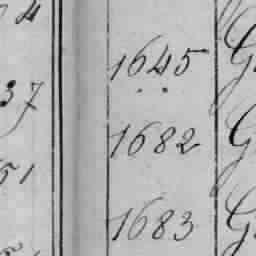 4
1645 G
37
1682 G
51
1683 G